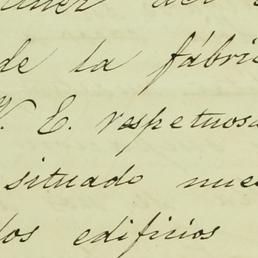 de la fábri
V. E. respetuosa
situado nue
los edificios